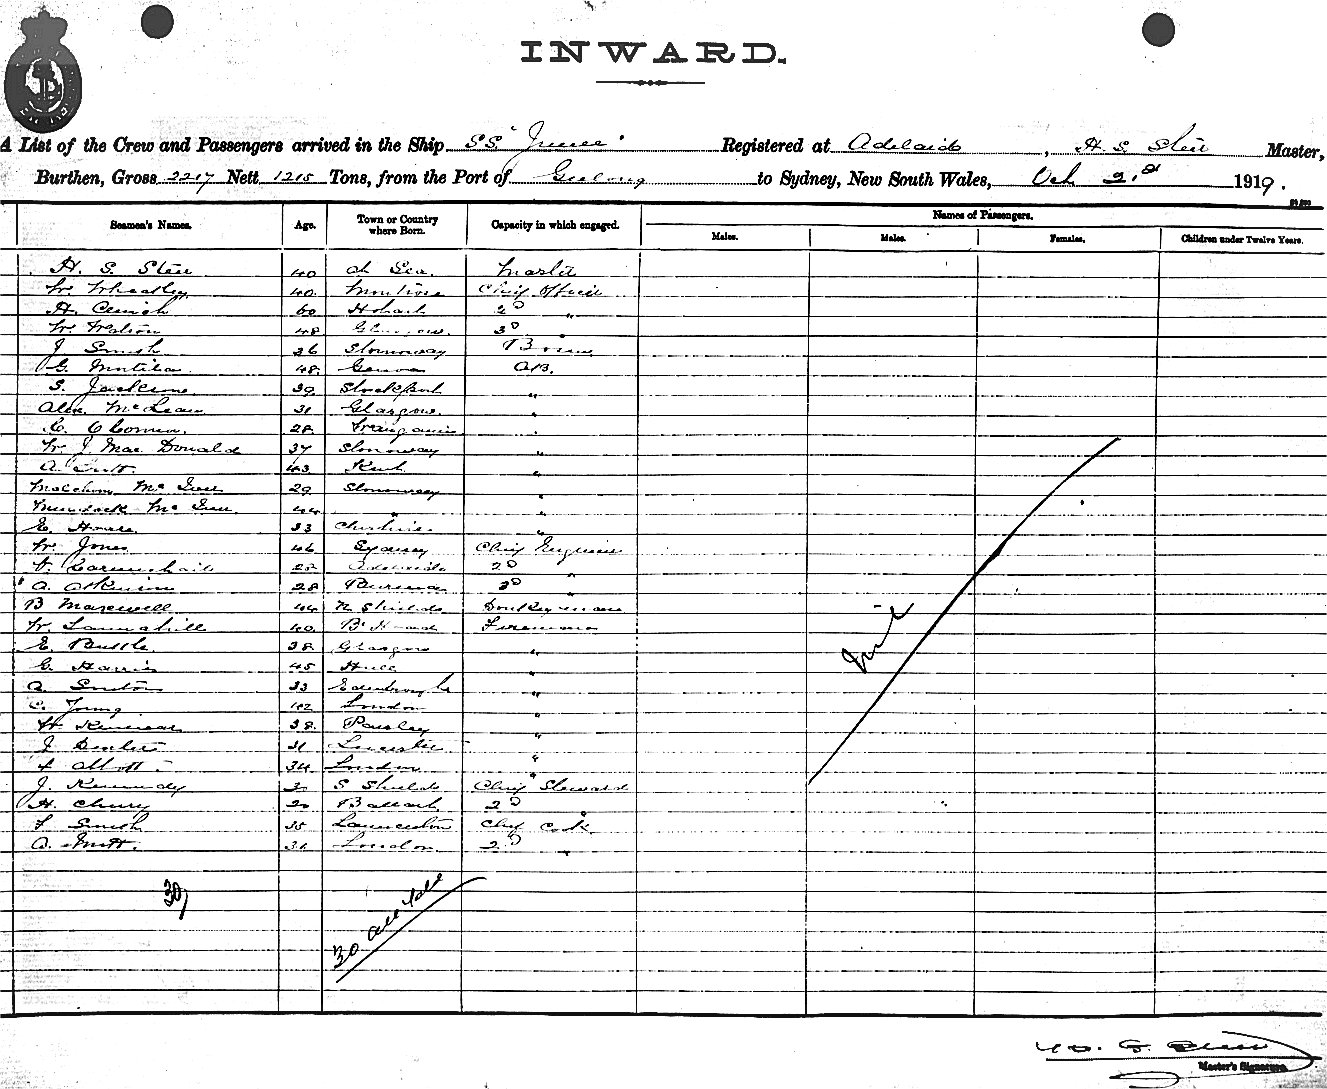 INWARD.
A List of the Crew and Passengers arrived in the Ship SS "Junee" Registered at Adelaide, H. S. Steer Master,
Burthen, Gross 2217 Nett 1215 Tons, from the Port of Geelong to Sydney, New South Wales, Oct 2nd 1919.
Seamen's Names. Age. Town or Country where Born. Capacity in which engaged. Names of Passengers.
Males. Males. Females. Children under Twelve Years.
H. S. Steer 40 At Sea Master
W. Wheatley 40 Montrose Chief Officer
H. 60 Hobart 2D "
W. Watson 48 Glasgow 3D
J. Smith 26 Stornoway Bosun
G. 48 Genoa AB.
S. Jackson 39 Stockport "
Alex. McLean 31 Glasgow "
28 "
W. J. Mac Donald 37 Stornoway "
A. 43 Kent "
Malcolm McIver 29 Stornoway "
Murdock McIver 44 " "
E. 33 Cheshire "
W. Jones 46 Sydney Chief Engineer
28 Adelaide 2D "
A. Atkinson 28 3D "
B Maxwell 44 N Shields Donkeyman
W. 40 B Head Fireman
E. 38 Glasgow "
G. Harris 45 Hull "
A. 33 Edinburgh "
C. Young 42 London "
38 Paisley "
J. 31 Leicester "
Abbott 34 London "
J. Kennedy S Shields Chief Steward
H. 20 Ballarat 2D "
F Smith 35 Launceston Chief Cook
A. 31 London 2D "
Nil
30
30 all told
H. S. Steer
Master's Signature.